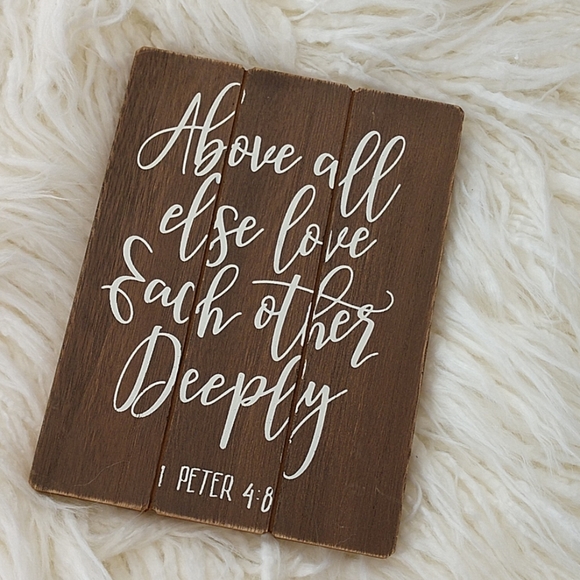 Above all
else love
Each other
Deeply
1 PETER 4:8